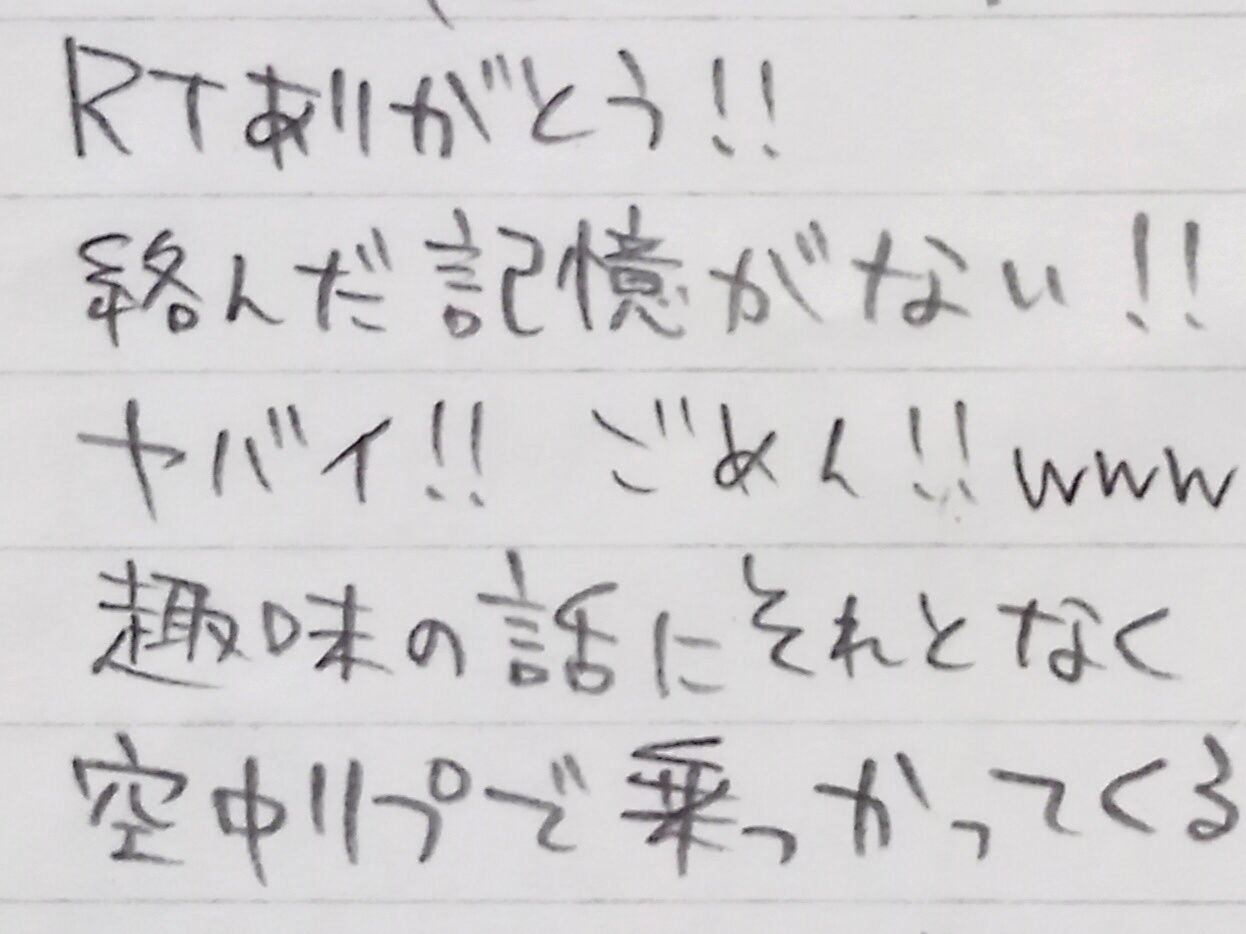 RTありがとう!!
絡んだ記憶がない!!
ヤバイ!! ごめん!! www
趣味の話にそれとなく
空中リプで乗っかってくる